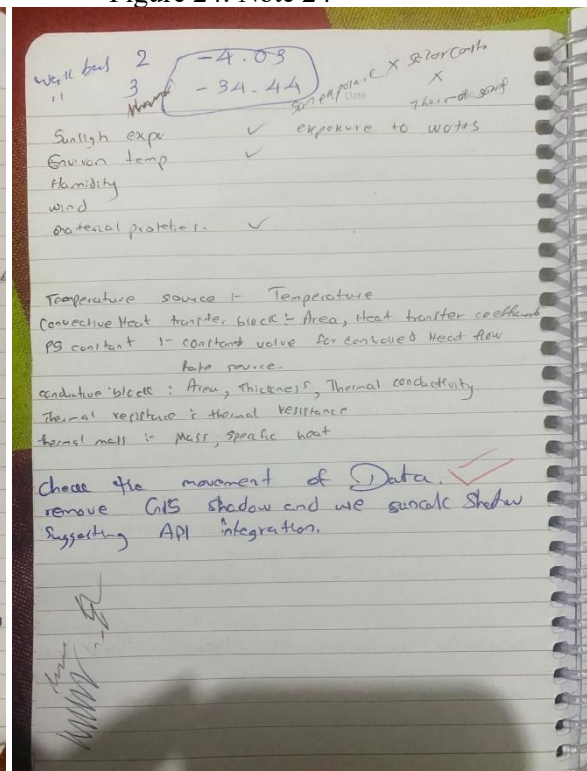 Figure 24: Note 24
wall bad 2 -4.03
" 3 -34.44
X Solar Const
X
Date
Sunligh expo ✓ exposure to watts
Environ temp ✓
Humidity
wind
material ✓
Temperature source :- Temperature
Convective Heat transfer block :- Area, Heat transfer coefficient
PS constant :- constant value for controlled Heat flow
Rate source.
conductive block : Area, Thickness, Thermal conductivity
Thermal resistance : thermal resistance
thermal mass :- Mass, specific heat
Check the movement of Data.
remove GIS shadow and use suncalc Shadow
Suggesting API integration.